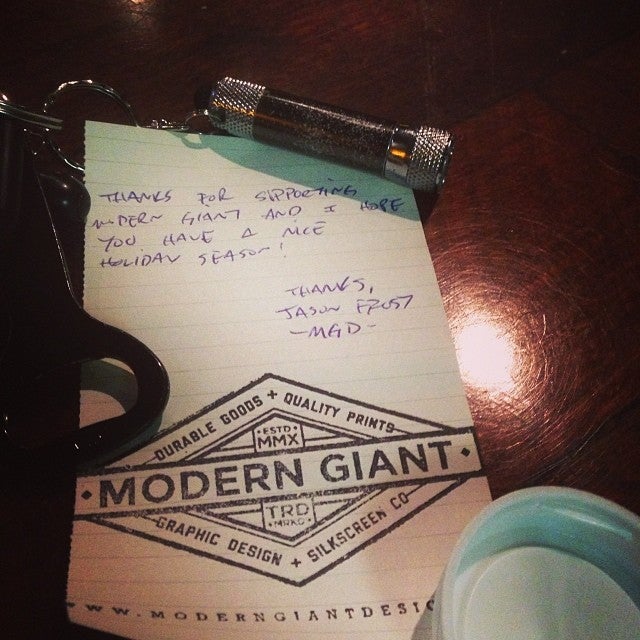 THANKS FOR SUPPORTING
MODERN GIANT AND I HOPE
YOU HAVE A NICE
HOLIDAY SEASON!
THANKS,
JASON FROST
-MGD-
DURABLE GOODS + QUALITY PRINTS
ESTD
MMX
• MODERN GIANT •
TRD
MRKD
GRAPHIC DESIGN + SILKSCREEN CO
WW.MODERNGIANTDESIG